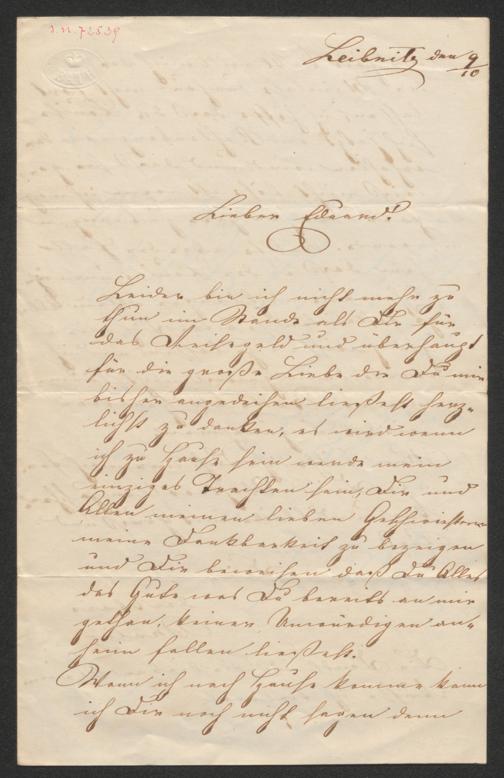 I.N. 72539
Leibnitz den 9/10
Lieber Eduard!
Leider bin ich nicht mehr zu
thun im Stande als Dir für
das Reisegeld und überhaupt
für die große Liebe die Du mir
bisher angedeihen ließest herz-
lichst zu danken, es wird wenn
ich zu Hause sein werde mein
einziges Trachten sein, Dir und
Allen meinen lieben Geschwistern
meine Dankbarkeit zu bezeigen
und Dir beweisen daß Du Alles
das Gute was Du bereits an mir
gethan, keinen Unwürdigen an-
heim fallen ließest.
Wann ich nach Hause komme kann
ich Dir noch nicht sagen denn